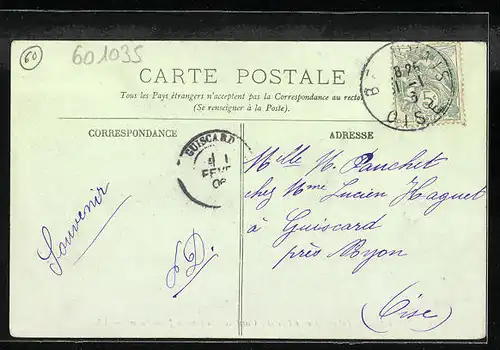 60
601035
CARTE POSTALE
Tous les Pays étrangers n'acceptent pas la Correspondance au recto
(Se renseigner à la Poste).
CORRESPONDANCE
ADRESSE
GUISCARD
FEVR
OISE
Souvenir
Melle M. Panchet
chez Mme Lucien Haguet
à Guiscard
près Nyon
(Oise)